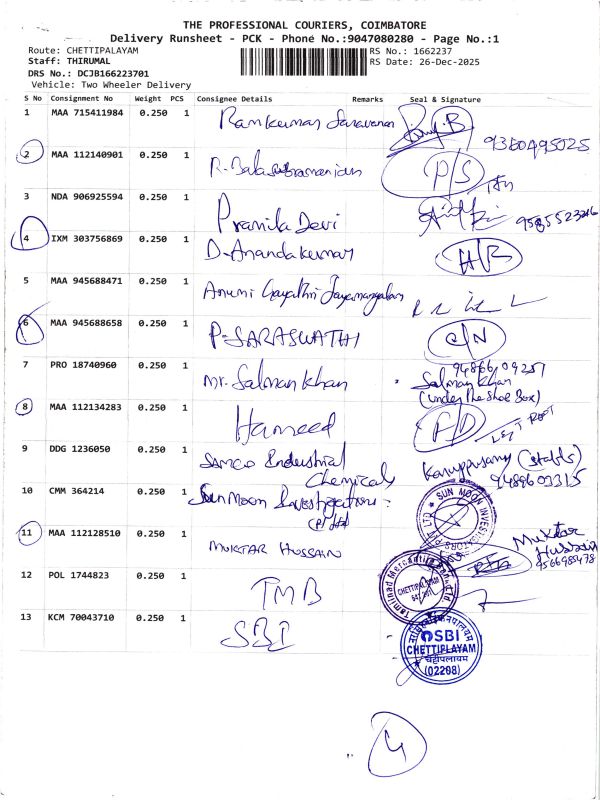 THE PROFESSIONAL COURIERS, COIMBATORE
Delivery Runsheet - PCK - Phone No.:9047080280 - Page No.:1
Route: CHETTIPALAYAM RS No.: 1662237
Staff: THIRUMAL RS Date: 26-Dec-2025
DRS No.: DCJB166223701
Vehicle: Two Wheeler Delivery
S No Consignment No Weight PCS Consignee Details Remarks Seal & Signature
1 MAA 715411984 0.250 1 Ramkumar Saravanan
2 MAA 112140901 0.250 1 R. Balasubramanian P/S
3 NDA 906925594 0.250 1 Pramila Devi
4 IXM 303756869 0.250 1 D. Anandakumar H/R
5 MAA 945688471 0.250 1 Gayathri
6 MAA 945688658 0.250 1 P. SARASWATHI C/N
7 PRO 18740960 0.250 1 Mr. Salman Khan Salman Khan
(Under The Shoe Box)
8 MAA 112134283 0.250 1 Hameed P/D
9 DDG 1236050 0.250 1 SAMCO Industrial
Chemicals
9489603315
10 CMM 364214 0.250 1 Sun Moon Investigations
(P) Ltd
SUN MOON INVESTIGATORS PVT LTD
11 MAA 112128510 0.250 1 MUKTAR HUSSAIN Muktar
Hussain
12 POL 1744823 0.250 1 TMB
Tamilnad Mercantile Bank Ltd
CHETTIPALAYAM
13 KCM 70043710 0.250 1 SBI
SBI
CHETTIPALAYAM
चेट्टीपालयम
(02208)
4